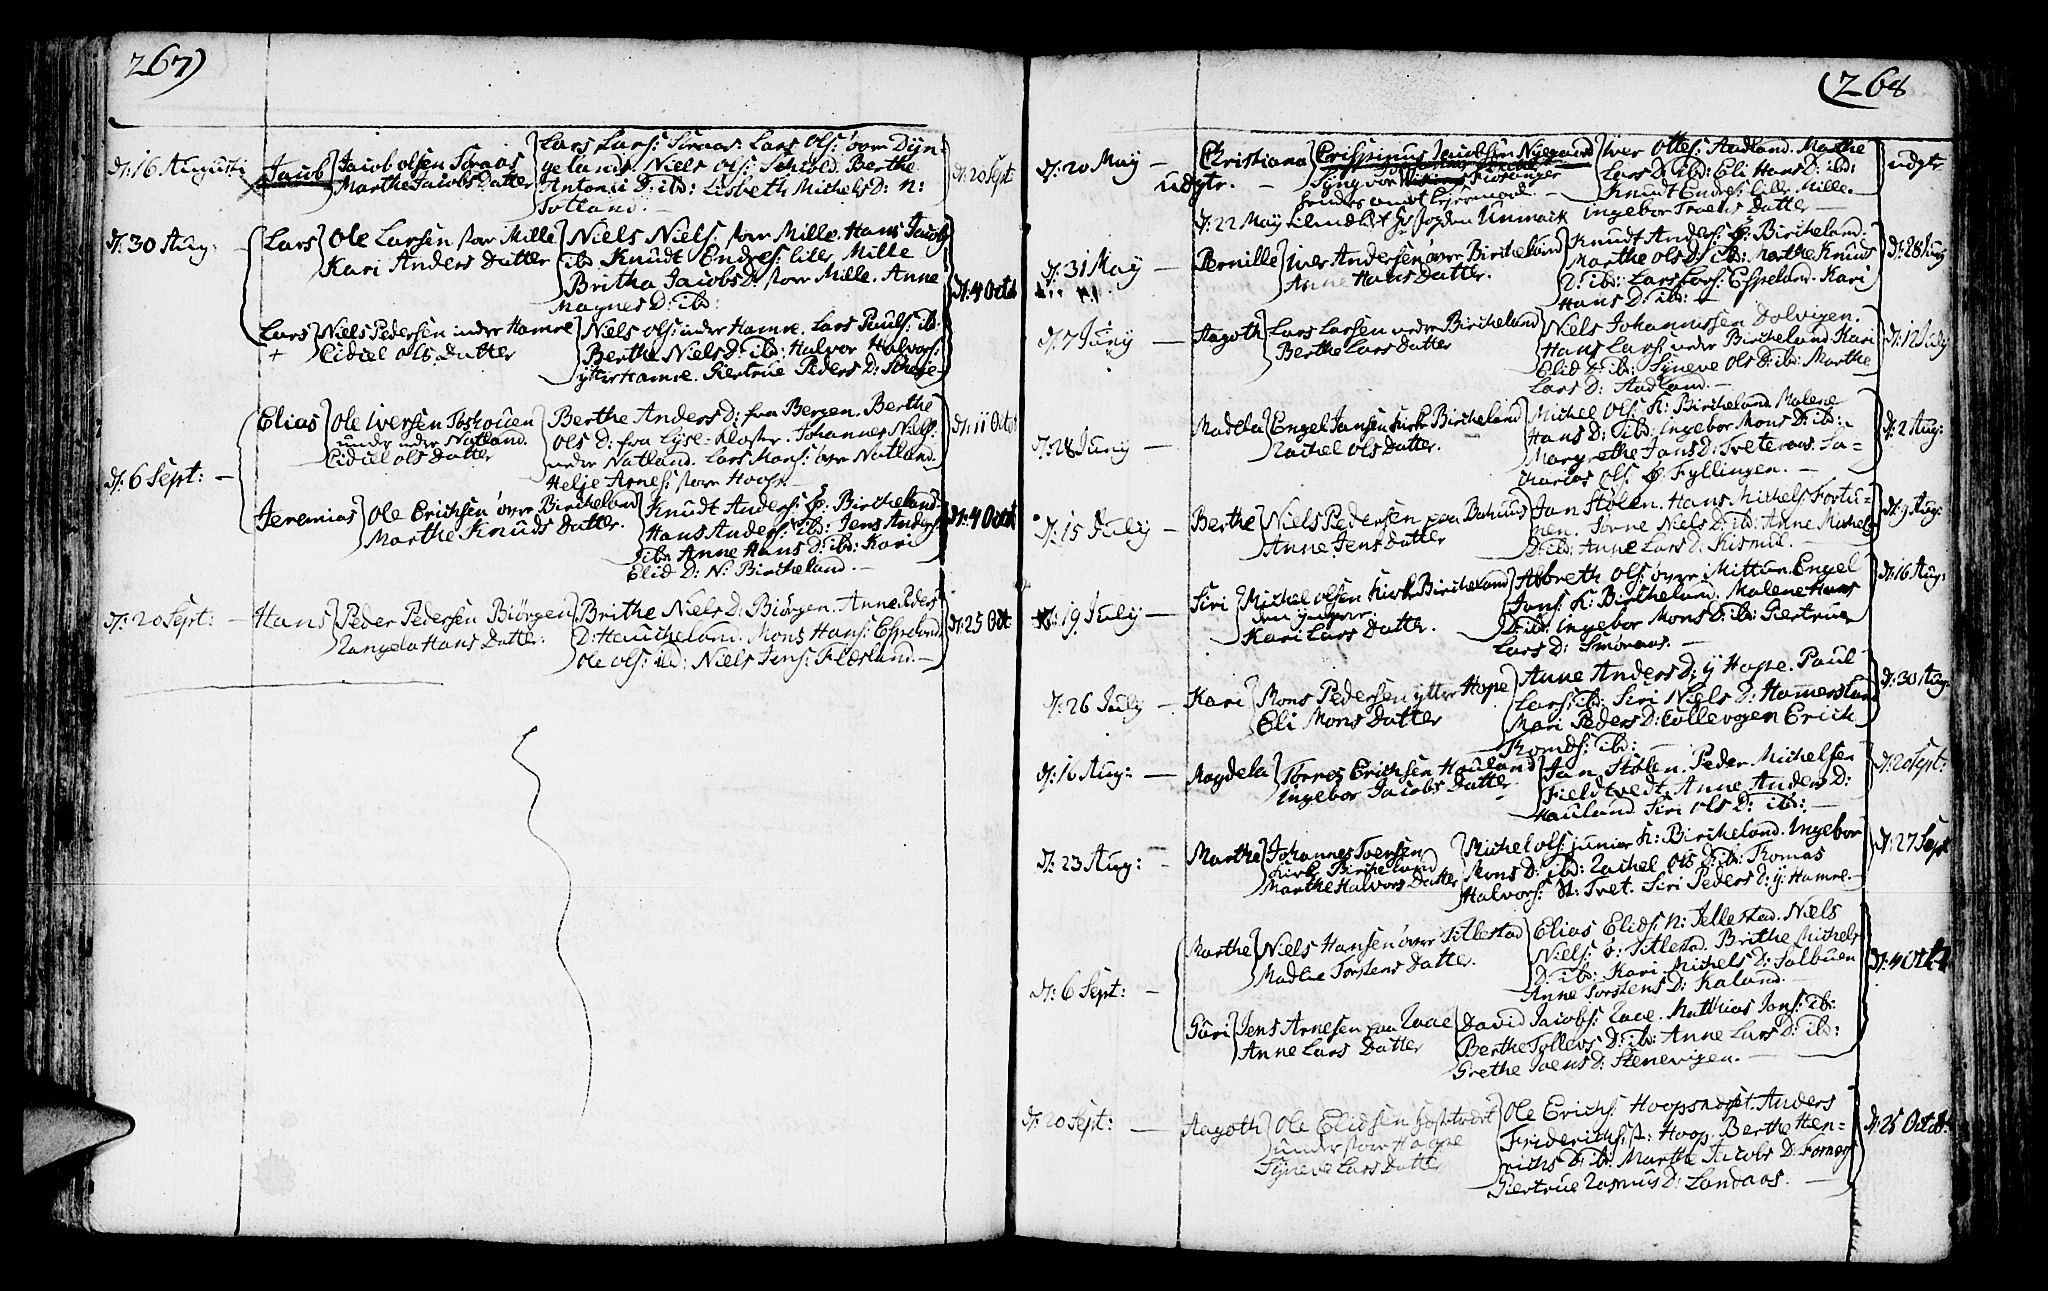 267)
d: 16 Augusti
Jacob
Jacob olsen Søraas
Marthe Jacobs Datter
Lars Lars: Søraas. Lars Ols: øvre Dyn-
geland. Niels Ols: Schiold. Berthe
Antoni D: ibd: Lisbeth Michels D: N:
Totland.
d: 20 Sept
d: 30 Aug:
Lars
Ole Larsen stor Mille
Kari Anders Datter
Niels Niels: stor Mille. Hans Jacobs
ibd. Knudt Endres: litle Mille
Britha Jacobs D: stor Mille. Anne
Magnes D: ibd:
d: 4 Octb
Lars
+
Niels Pedersen inder Hamre
Cidcel Ols Datter
Niels Ols: inder Hamre. Lars Pauls: ib.
Berthe Niels D: ibd: Halvor Halvors:
ytter Hamre. Giertrue Peders D:
d: 6 Sept: —
Elias
Ole Iversen
under nedr Natland.
Cidcel ols Datter
Berthe Anders D: fra Bergen. Berthe
Ols D: fra Lyse-Kloster. Johannes Niels:
nedre Natland. Lars Mons: øvr Natland.
Helje Arnes: store Hoop. —
d: 11 Octb
Jeremias
Ole Erichsen øvre Bircheland
Marthe Knuds Datter.
Knudt Anders: Ø: Bircheland
Hans Anders: ibd: Jens Anders:
ibd: Anne Hans D: ibd: Kari
Elid D: N: Bircheland. —
d: 4 Octb
d: 20 Sept: —
Hans
Peder Pedersen Biørgen
Rangela Hans Datter.
Brithe Niels D: Biørgen. Anne Peders
D: Haucheland. Mons Hans: Espeland
Ole Ols: ibd: Niels Jens: Flesland. —
d: 25 Oct
(268
d: 20 May —
udgtr. —
Christiana
Crispinus Jacobsen Nygaard
d: 22 May
Iver Ottes: Aadland. Marthe
Lars D: ibd: Eli Hans D: ibd:
Knudt Endres: litle Mille.
Ingebor Troels Datter —
udgtr
d: 31 May —
Pernille
Iver Andersen øvre Bircheland
Anne Hans Datter.
Knudt Anders: Ø: Bircheland.
Marthe ols D: ibd: Marthe Knuds
D: ibd: Lars Lars: Espeland. Kari
Hans D: ibd: —
d: 28 Juny
d: 7 Juny —
Aagoth
Lars Larsen nedre Bircheland
Berthe Lars Datter
Niels Johannessen Dolvigen.
Hans Lars: nedre Bircheland Kari
Elid D: ib: Synneve Ols D: ibd: Marthe
Lars D: Aadland. —
d: 12 July
d: 28 Juny —
Madela
Engel Jansen Kirk Bircheland
Rachel Ols Datter.
Michel Ols: K: Bircheland Malene
Hans D: ibd: Ingebor Mons D: ibd:
Margrethe Jans D: Tveteraas. Za-
charias Ols: Ø: Fyllingen. —
d: 2 Aug:
d: 15 July —
Berthe
Niels Pedersen paa
Anne Jens Datter
Jan Stølen. Hans Michels: Fortu-
nen. Jorne Niels D: ibd: Anne Michels
D: ibd: Anne Lars D: Kismul. —
d: 9 Aug:
d: 19 July —
Siri
Michel olsen Kirk Bircheland
den yngre.
Kari Lars Datter.
Albreth Ols: øvre Mittun. Engel
Jans: K: Bircheland. Malene Hans
D: ibd: Ingebor Mons D: ib: Giertrue
Lars D: Smøraas. —
d: 16 Aug:
d: 26 July —
Kari
Mons Pedersen ytter Hope
Eli Mons Datter
Anne Anders D: y Hope. Paul
Lars: ibd: Siri Niels D: Hamersland
Mari Peders D: Collevogen Erich
ibd: —
d: 30 Aug:
d: 16 Aug: —
Magdela
Torres Erichsen Hauland
Ingebor Jacobs Datter
Jan Stølen. Peder Michelsen
Fieldtvedt. Anne Anders D:
Hauland Siri Ols D: ibd: —
d: 20 Sept:
d: 23 Aug: —
Marthe
Johannes Iversen
Kirk Bircheland
Marthe Halvors Datter
Michel ols: junior K: Bircheland. Ingebor
Mons D: ibd: Rachel Ols D: ib: Thomas
Halvors: St: Tvet. Siri Peders D: y: Hamre. —
d: 27 Sept
d: 6 Sept: —
Marthe
Niels Hansen øvre Titlestad
Madlie Torstens Datter.
Elias Elids: N: Jellestad. Niels
Niels: Ø: Titlestad. Brithe Michels
D: ib: Kari Michels D: Sælbuen
Anne Torstens D: Kaland.
d: 4 Octb
Guri
Jens Arnesen paa Raae
Anne Lars Datter
David Jacobs: Raae. Matthias Jons: ib:
Berthe Tollevs D: ib: Anne Lars D: ib:
Grethe Ivens D: Stenevigen. —
d: 20 Sept: —
Aagoth
Ole Elidsen
under stor Hope
Synneve Lars Datter
Ole Erichs: Hoopsnæset. Anders
Friderichs: st: Hoop. Berthe Hen-
richs D: ib: Marthe Jacobs D:
Giertrue Rasmus D: Landaas. —
d: 25 Octob: